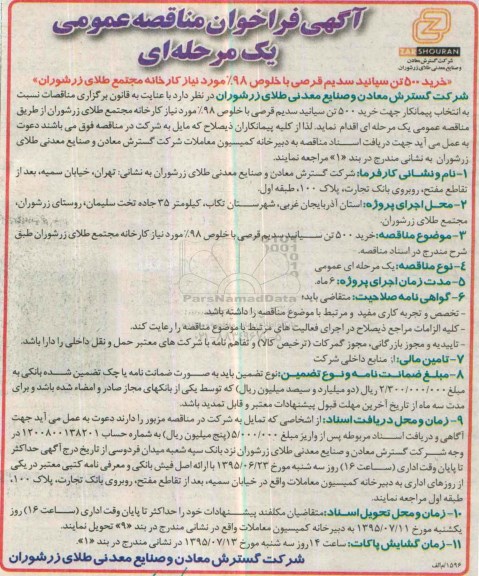 آگهی فراخوان مناقصه عمومی
یک مرحله‌ای
ZAR SHOURAN
شرکت گسترش معادن
و صنایع معدنی طلای زرشوران
«خرید ۵۰۰ تن سیانید سدیم قرصی با خلوص ۹۸٪ مورد نیاز کارخانه مجتمع طلای زرشوران»
شرکت گسترش معادن و صنایع معدنی طلای زرشوران در نظر دارد با عنایت به قانون برگزاری مناقصات نسبت
به انتخاب پیمانکار جهت خرید ۵۰۰ تن سیانید سدیم قرصی با خلوص ۹۸٪ مورد نیاز کارخانه مجتمع طلای زرشوران از طریق
مناقصه عمومی یک مرحله ای اقدام نماید. لذا از کلیه پیمانکاران ذیصلاح که مایل به شرکت در مناقصه فوق می باشند دعوت
به عمل می آید جهت دریافت اسناد مناقصه به دبیرخانه کمیسیون معاملات شرکت گسترش معادن و صنایع معدنی طلای
زرشوران به نشانی مندرج در بند «۱» مراجعه نمایند.
۱-نام و نشانی کارفرما: شرکت گسترش معادن و صنایع معدنی طلای زرشوران به نشانی: تهران، خیابان سمیه، بعد از
تقاطع مفتح، روبروی بانک تجارت، پلاک ۱۰۰، طبقه اول.
۲-محل اجرای پروژه: استان آذربایجان غربی، شهرستان تکاب، کیلومتر ۳۵ جاده تخت سلیمان، روستای زرشوران،
مجتمع طلای زرشوران.
۳-موضوع مناقصه: خرید ۵۰۰ تن سیانید سدیم قرصی با خلوص ۹۸٪ مورد نیاز کارخانه مجتمع طلای زرشوران طبق
شرح مندرج در اسناد مناقصه.
۴-نوع مناقصه: یک مرحله ای عمومی
۵-مدت زمان اجرای پروژه: ۶ ماه.
ParsNamadData
۶-گواهی نامه صلاحیت: متقاضی باید:
- تخصص و تجربه کاری مفید و مرتبط با موضوع مناقصه را داشته باشد.
- کلیه الزامات مراجع ذیصلاح در اجرای فعالیت های مرتبط با موضوع مناقصه را رعایت کند.
- تاییدیه و مجوز بازرگانی، مجوز گمرکات (ترخیص کالا) و تفاهم نامه با شرکت های معتبر حمل و نقل داخلی را دارا باشد.
۷-تامین مالی: از منابع داخلی شرکت
۸-مبلغ ضمانت نامه و نوع تضمین: نوع تضمین باید به صورت ضمانت نامه یا چک تضمین شده بانکی به
مبلغ ۲/۳۰۰/۰۰۰/۰۰۰ ریال (دو میلیارد و سیصد میلیون ریال) که توسط یکی از بانکهای مجاز صادر و امضاء شده باشد و برای
مدت سه ماه از تاریخ آخرین مهلت قبول پیشنهادات معتبر و قابل تمدید باشد.
۹-زمان و محل دریافت اسناد: از اشخاصی که تمایل به شرکت در مناقصه مزبور را دارند دعوت به عمل می آید جهت
آگاهی و دریافت اسناد مربوطه پس از واریز مبلغ ۵/۰۰۰/۰۰۰ (پنج میلیون ریال) به شماره حساب ۱۲۰۰۸۰۰۱۳۸۲۰۱ در
وجه شرکت گسترش معادن و صنایع معدنی طلای زرشوران نزد بانک سپه شعبه میدان فردوسی از تاریخ درج آگهی حداکثر
تا پایان وقت اداری (ساعت ۱۶) روز سه شنبه مورخ ۱۳۹۵/۰۶/۲۳ با ارائه اصل فیش بانکی و معرفی نامه کتبی معتبر در یکی
از روزهای اداری به دبیرخانه کمیسیون معاملات واقع در خیابان سمیه، بعد از تقاطع مفتح، روبروی بانک تجارت، پلاک ۱۰۰،
طبقه اول مراجعه نمایند.
۱۰-زمان و محل تحویل اسناد: متقاضیان مکلفند پیشنهادات خود را حداکثر تا پایان وقت اداری (ساعت ۱۶) روز
یکشنبه مورخ ۱۳۹۵/۰۷/۱۱ به دبیرخانه کمیسیون معاملات واقع در نشانی مندرج در بند «۹» تحویل نمایند.
۱۱-زمان گشایش پاکات: ساعت ۱۴ روز سه شنبه مورخ ۱۳۹۵/۰۷/۱۳ در نشانی مندرج در بند «۱».
شرکت گسترش معادن و صنایع معدنی طلای زرشوران
۱۵۹۶/م الف